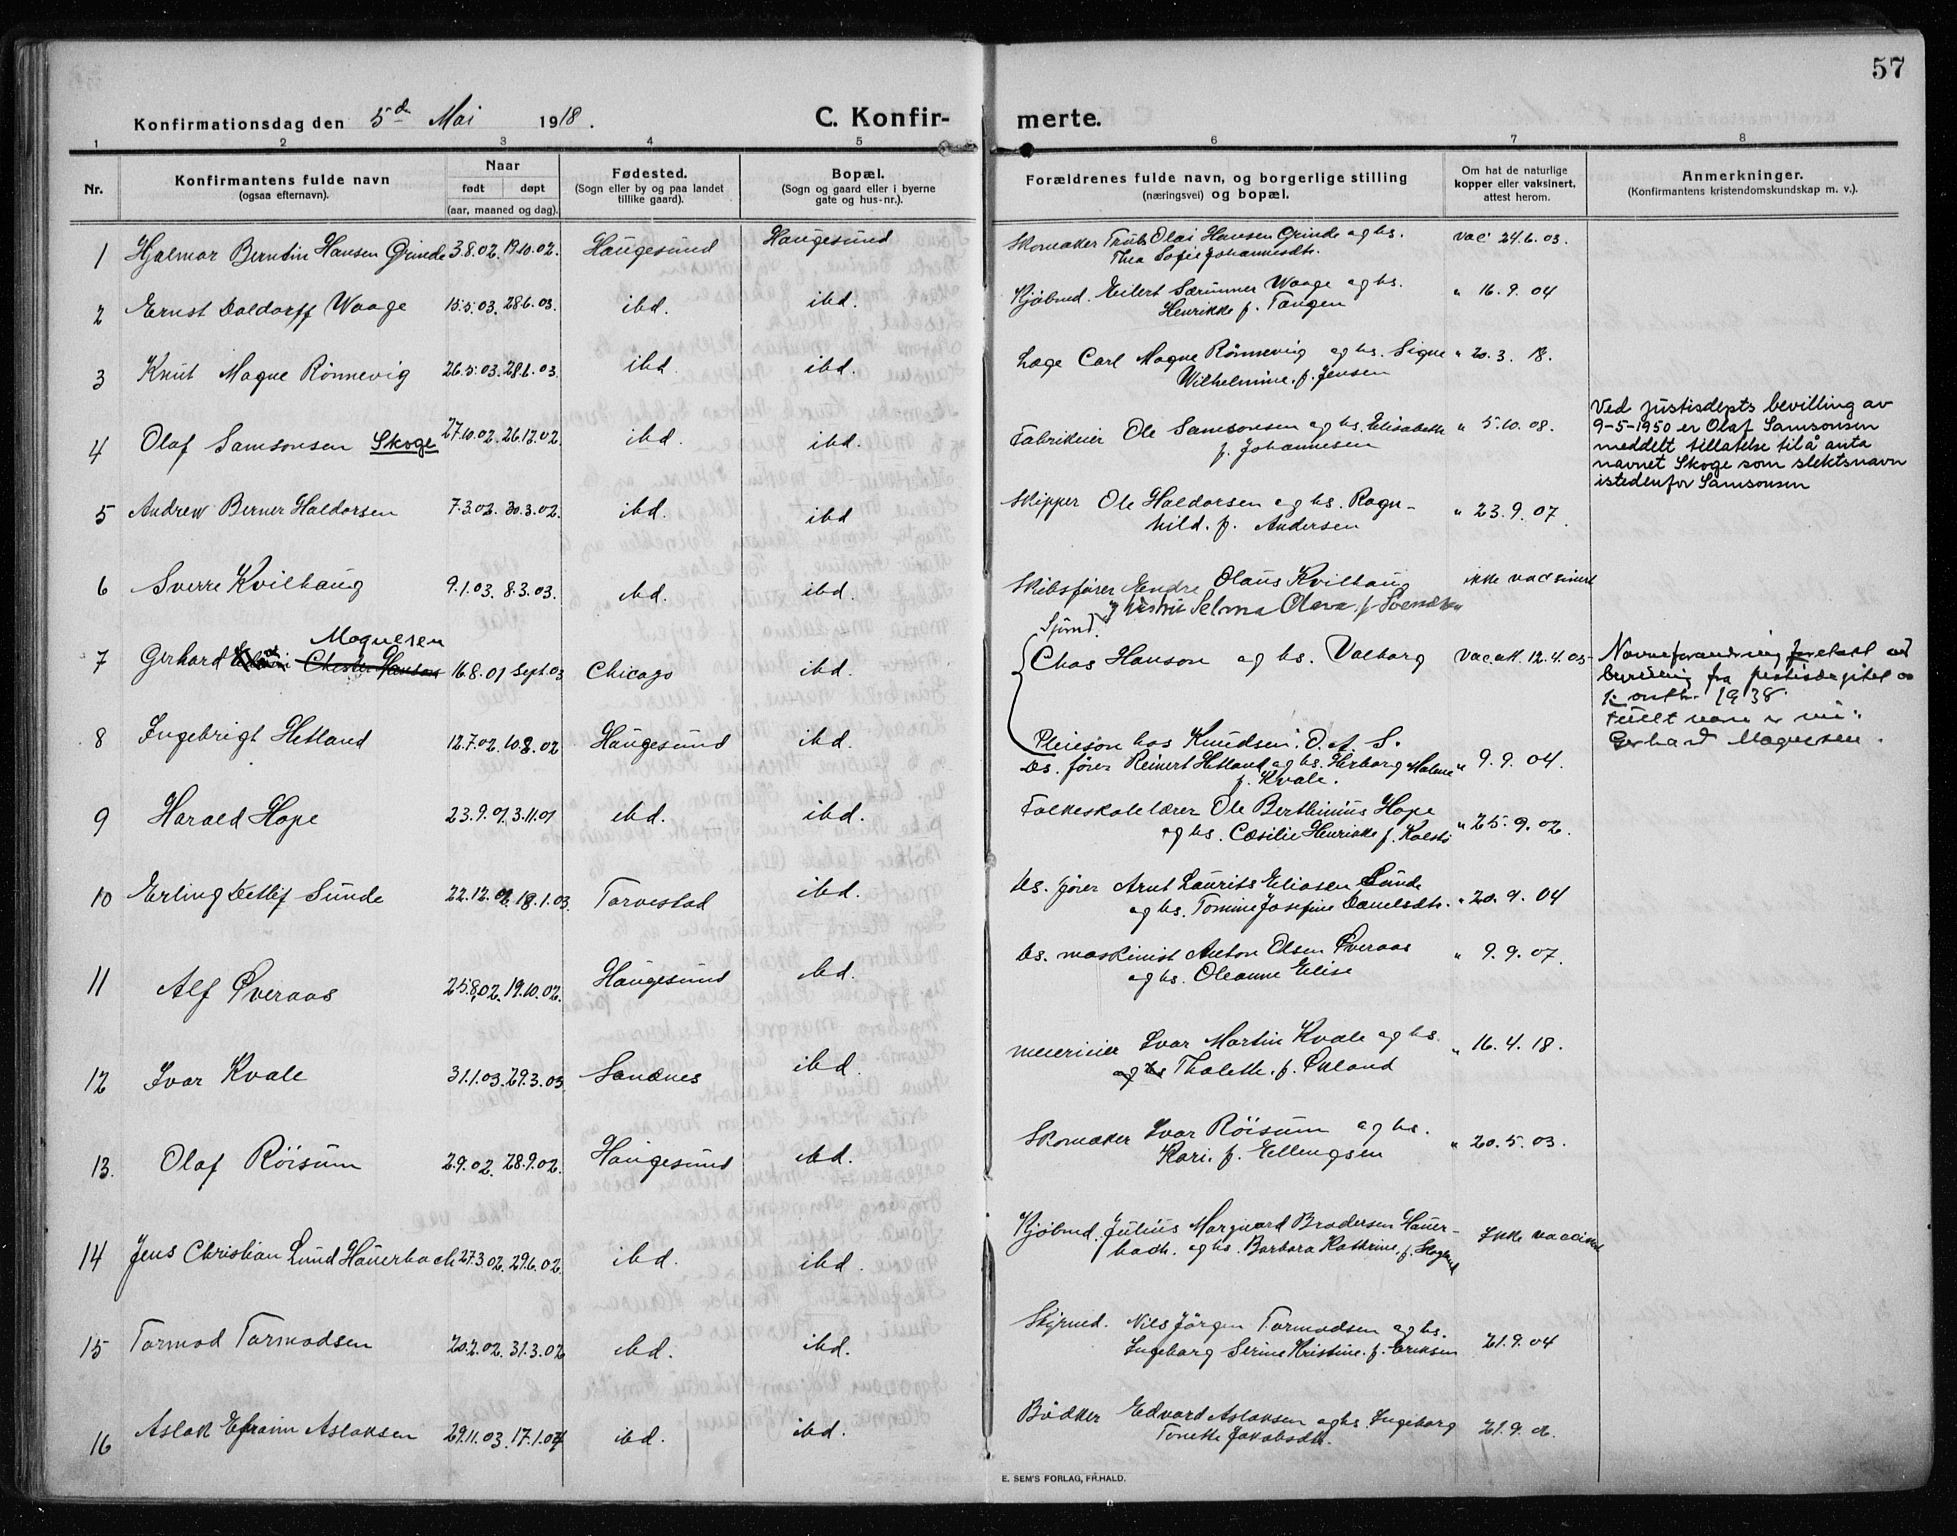 57
Konfirmationsdag den 5d Mai 1918. C. Konfir- merte.
1 2 3 4 5 6 7 8
Nr. Konfirmantens fulde navn (ogsaa efternavn). Naar født døpt (aar, maaned og dag). Fødested. (Sogn eller by og paa landet tillike gaard). Bopæl. (Sogn og gaard eller i byerne gate og hus-nr.). Forældrenes fulde navn, og borgerlige stilling (næringsvei) og bopæl. Om hat de naturlige kopper eller vaksinert, attest herom. Anmerkninger. (Konfirmantens kristendomskundskap m. v.).
1 Hjalmar Berntin Hansen Grinde 3.8.02. 19.10.02. Haugesund Haugesund Skomaker Truls Olai Hansen Grinde og hs. vac 24.6.03.
Thea Sofie Johannesdtr.
2 Ernst Daldorff Waage 15.5.03. 28.6.03. ibd. ibd. Kjøbmd. Eilert Særunner Waage og hs. " 16.9.04
Henrikke f. Tangen
3 Knut Magne Rönnevig 26.5.03. 28.6.03. ibd. ibd. Læge Carl Magne Rönnevig og hs. Signe " 20.3.18.
Wilhelmine f. Jensen
4 Olaf Samsonsen Skoge 27.10.02. 26.12.02. ibd. ibd. Fabrikeier Ole Samsonsen og hs. Elisabeth " 5.10.08.
f. Johannesen
Ved justisdepts bevilling av
9-5-1950 er Olaf Samsonsen
meddelt tillatelse til å anta
navnet Skoge som slektsnavn
istedenfor Samsonsen
5 Andrew Berner Haldorsen 7.3.02. 30.3.02. ibd. ibd Skipper Ole Haldorsen og hs. Ragn- " 23.9.07.
hild. f. Andersen
6 Sverre Kvilhaug 9.1.03. 8.3.03. ibd. ibd. Skibsfører Endre Olaus Kvilhaug ikke vacsinert
Selma Olava f. Svendsen
7 Gerhard Magnesen Chester Hanson 16.8.01 Sept.03 Chicago ibd. Sjömd. Chas Hanson og hs. Valborg Vac att. 12.4.03
Pleieson hos Knudsen. D. af S.
Navneforandring foretatt ved
bevilling fra justisdepitet
1938.
Fullt navn er nu:
Gerhard Magnesen.
8 Ingebrigt Hetland 12.7.02. 10.8.02 Haugesund ibd. Ds. fører Reinert Hetland og hs. Herborg Malene " 9.9.04.
f. Kvale.
9 Harald Hope 23.9.01. 3.11.01 ibd. ibd. Folkeskolelærer Ole Berthinius Hope " 25.9.02.
og hs. Cæsilie Henrikke f. Kolstö
10 Erling Detlef Sunde 22.12.02. 18.1.03. Torvestad ibd. Ds. fører Arnt Laurits Eliasen Sunde " 20.9.04
og hs. Tomine Josefine Danielsdtr.
11 Alf Øveraas 25.8.02. 19.10.02. Haugesund ibd. Ds. maskinist Anton Olsen Øveraas " 9.9.07.
og hs. Oleanne Elise
12 Ivar Kvale 31.1.03. 29.3.03 Sandnes ibd. meierieier Ivar Martin Kvale og hs. " 16.4.18.
og hs Thalette. f. Øuland
13. Olaf Röisum 2.9.02. 28.9.02. Haugesund ibd. Skomaker Ivar Röisum og hs. " 20.5.03.
Kari. f. Ellengsen
14 Jens Christian Lund Hauerbach 27.3.02. 29.6.02. ibd. ibd. Kjøbmd. Julius Marguard Brodersen Hauer- Ikke vaccinert
bach. og hs. Barbara Kathrine f.
15 Tormod Tormodsen 20.2.02. 31.3.02 ibd. ibd. Nils Jörgen Tormodsen og hs. 21.9.04
Ingeborg Serine Kristine. f. Eriksen
16 Aslak Efraim Aslaksen 29.11.03. 17.1.04 ibd. ibd. Bödker Edvard Aslaksen og hs. Ingeborg 21.9.
Tonette Jakobsdtr.
E. SEM'S FORLAG, FR.HALD.